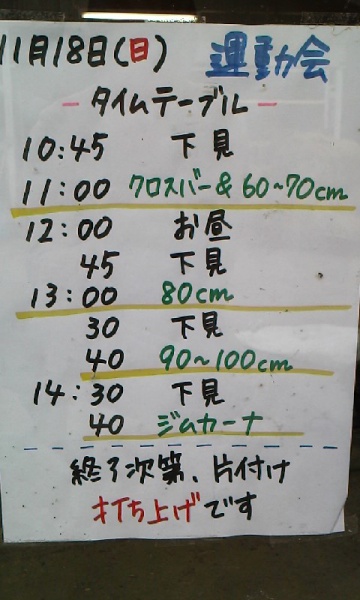 11月18日(日) 運動会
- タイムテーブル -
10:45 下見
11:00 クロスバー & 60~70cm
12:00 お昼
45 下見
13:00 80cm
30 下見
40 90~100cm
14:30 下見
40 ジムカーナ
終了次第、片付け
打ち上げです